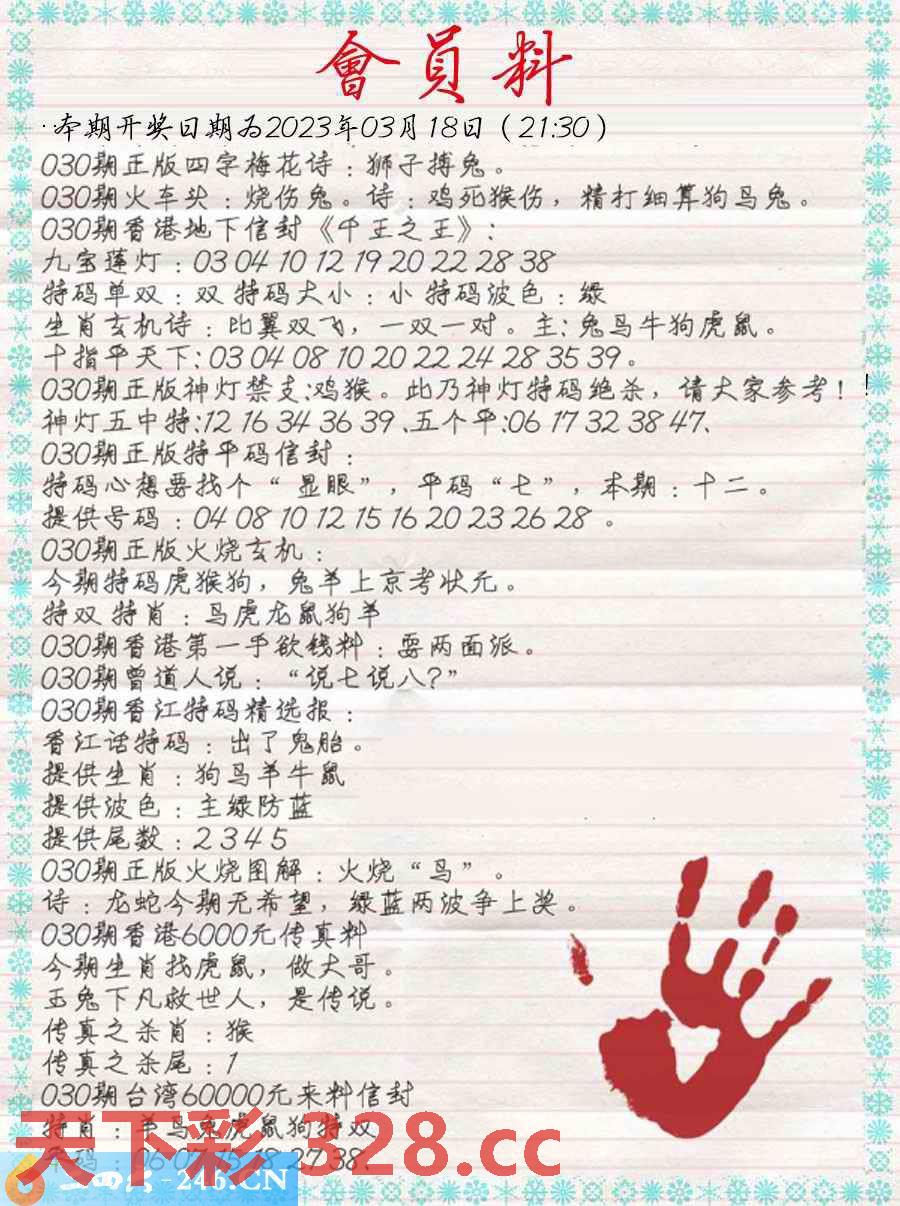 會員料
·本期开奖日期为2023年03月18日（21:30）
030期正版四字梅花诗：狮子搏兔。
030期火车头：烧伤兔。诗：鸡死猴伤，精打细算狗马兔。
030期香港地下信封《千王之王》：
九宝莲灯：03 04 10 12 19 20 22 28 38
特码单双：双 特码大小：小 特码波色：绿
生肖玄机诗：比翼双飞，一双一对。主：兔马牛狗虎鼠。
十指平天下：03 04 08 10 20 22 24 28 35 39。
030期正版神灯禁支：鸡猴。此乃神灯特码绝杀，请大家参考！！
神灯五中特：12 16 34 36 39、五个平：06 17 32 38 47、
030期正版特平码信封：
特码心想要找个“显眼”，平码“七”，本期：十二。
提供号码：04 08 10 12 15 16 20 23 26 28。
030期正版火烧玄机：
今期特码虎猴狗，兔羊上京考状元。
特双 特肖：马虎龙鼠狗羊
030期香港第一手欲钱料：耍两面派。
030期曾道人说：“说七说八？”
030期香江特码精选报：
香江话特码：出了鬼胎。
提供生肖：狗马羊牛鼠
提供波色：主绿防蓝
提供尾数：2 3 4 5
030期正版火烧图解：火烧“鸟”。
诗：龙蛇今期无希望，绿蓝两波争上奖。
030期香港6000元传真料
今期生肖找虎鼠，做大哥。
玉兔下凡救世人，是传说。
传真之杀肖：猴
传真之杀尾：1
030期台湾60000元来料信封
特肖：羊马兔虎鼠狗特双
平码：06 07 15 18 27 38、
天下彩 328.cc
-246.CN